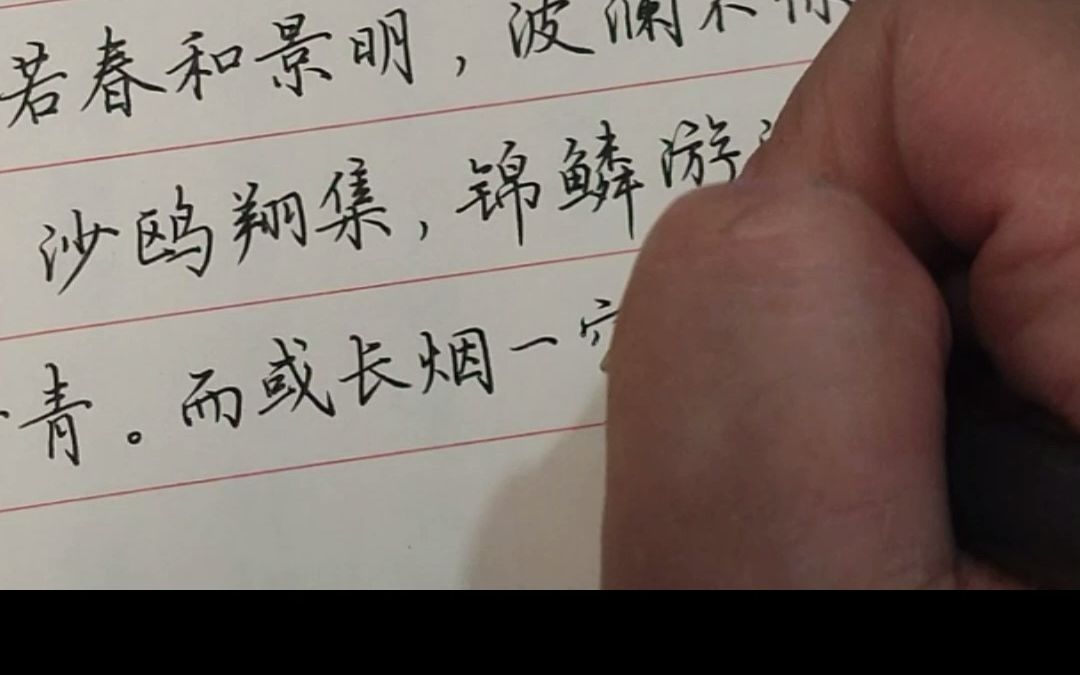 若春和景明，波澜不惊
沙鸥翔集，锦鳞游
青。而或长烟一空